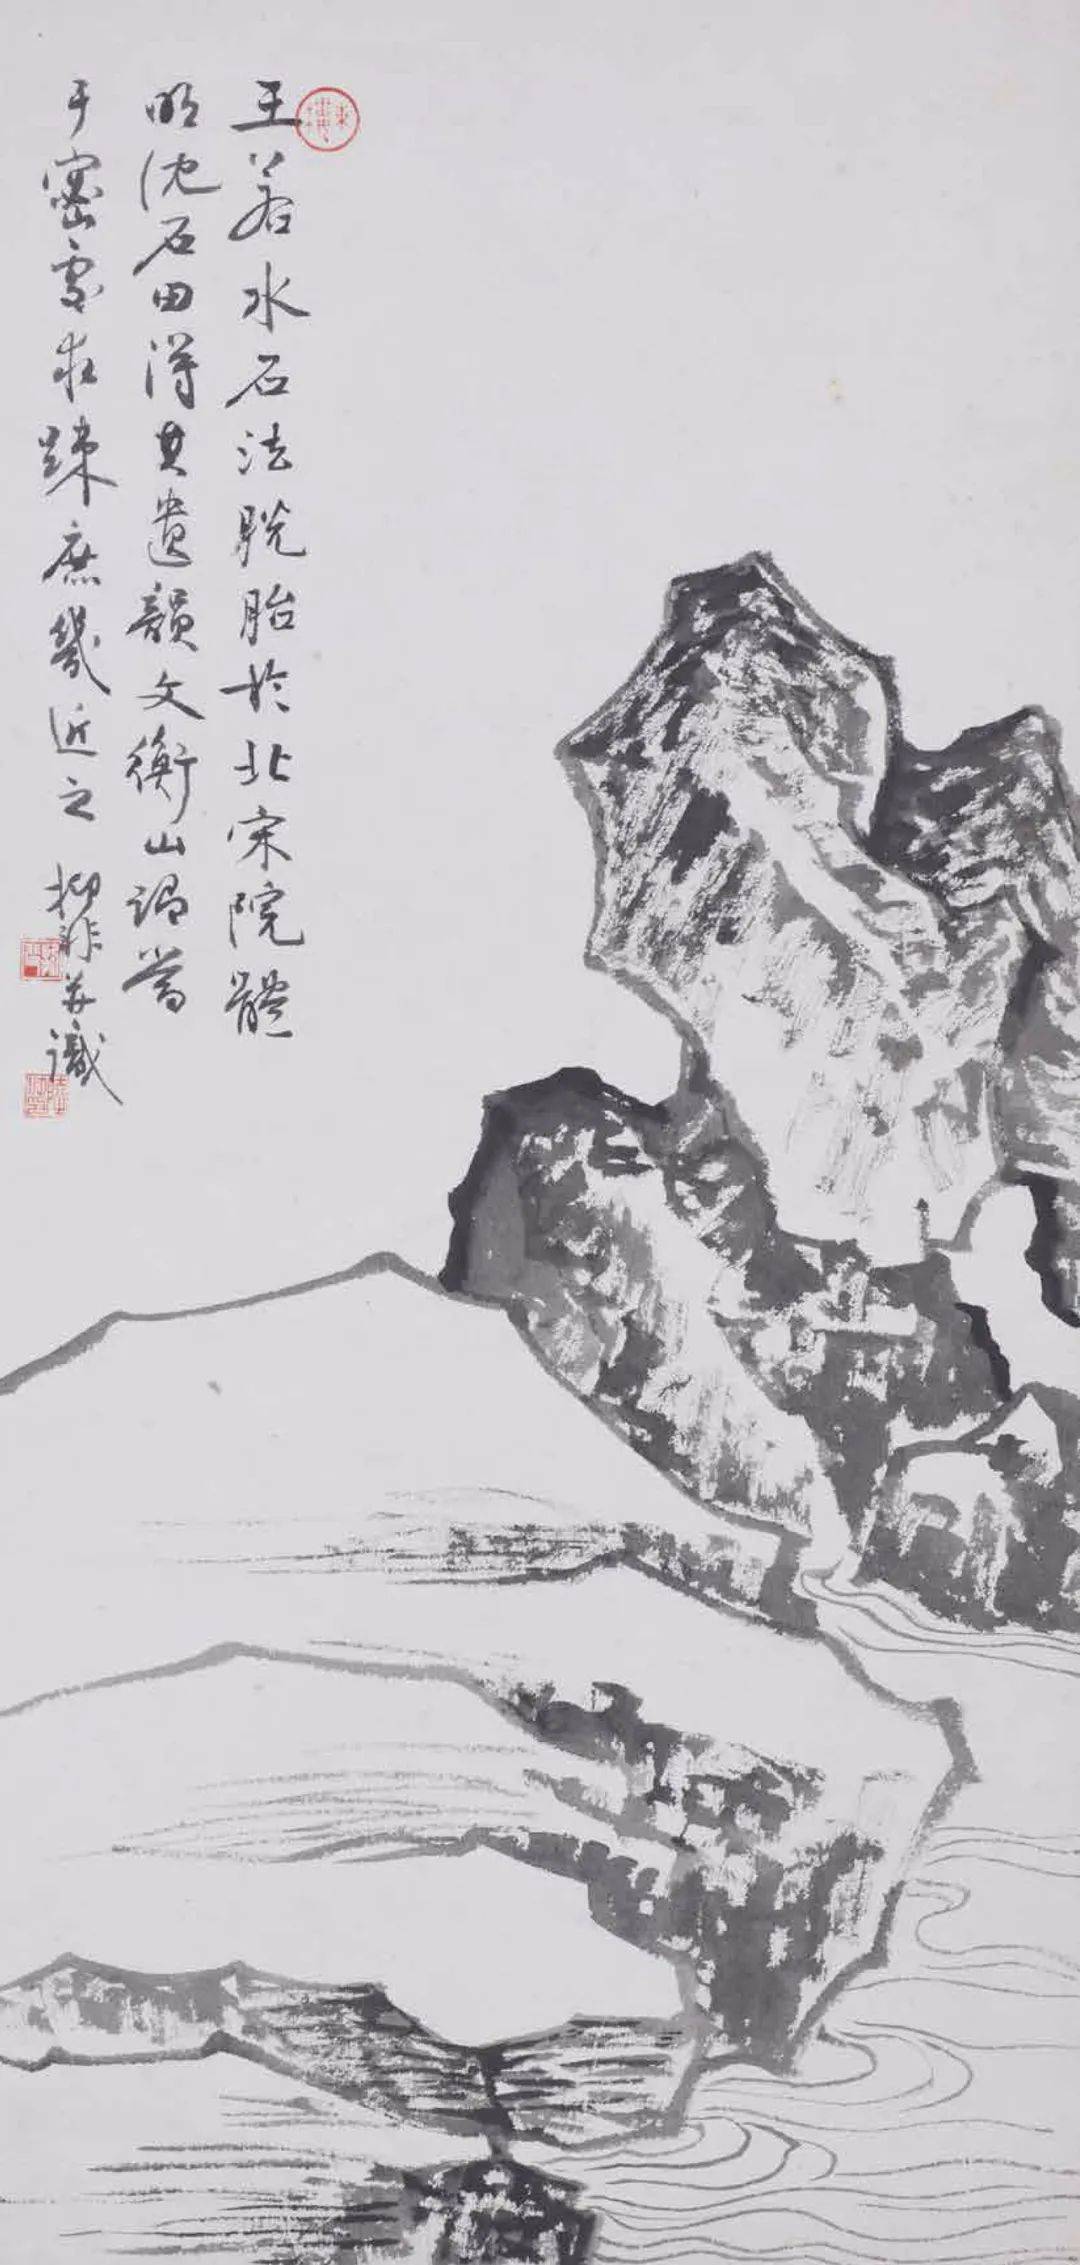 王若水石法脱胎於北宋院體
明沈石田得其遺韻文衡山謂當
于密處求疎庶幾近之 抑非并識